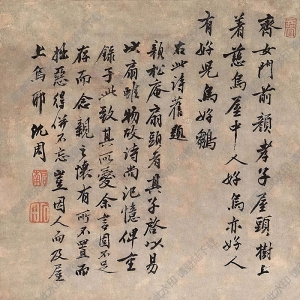 齊女門前顏孝子屋頭樹上
著慈烏屋中人好烏亦好人
有好兒烏好鶵
右此詩舊題
顏松庵扇頭者其子啓以易
此扇雖物故詩尚記憶俾重
錄于此致其所愛余言固不足
存而念親之懷有所不置而
拙惡得併不忘豈因人而及屋
上烏耶沈周